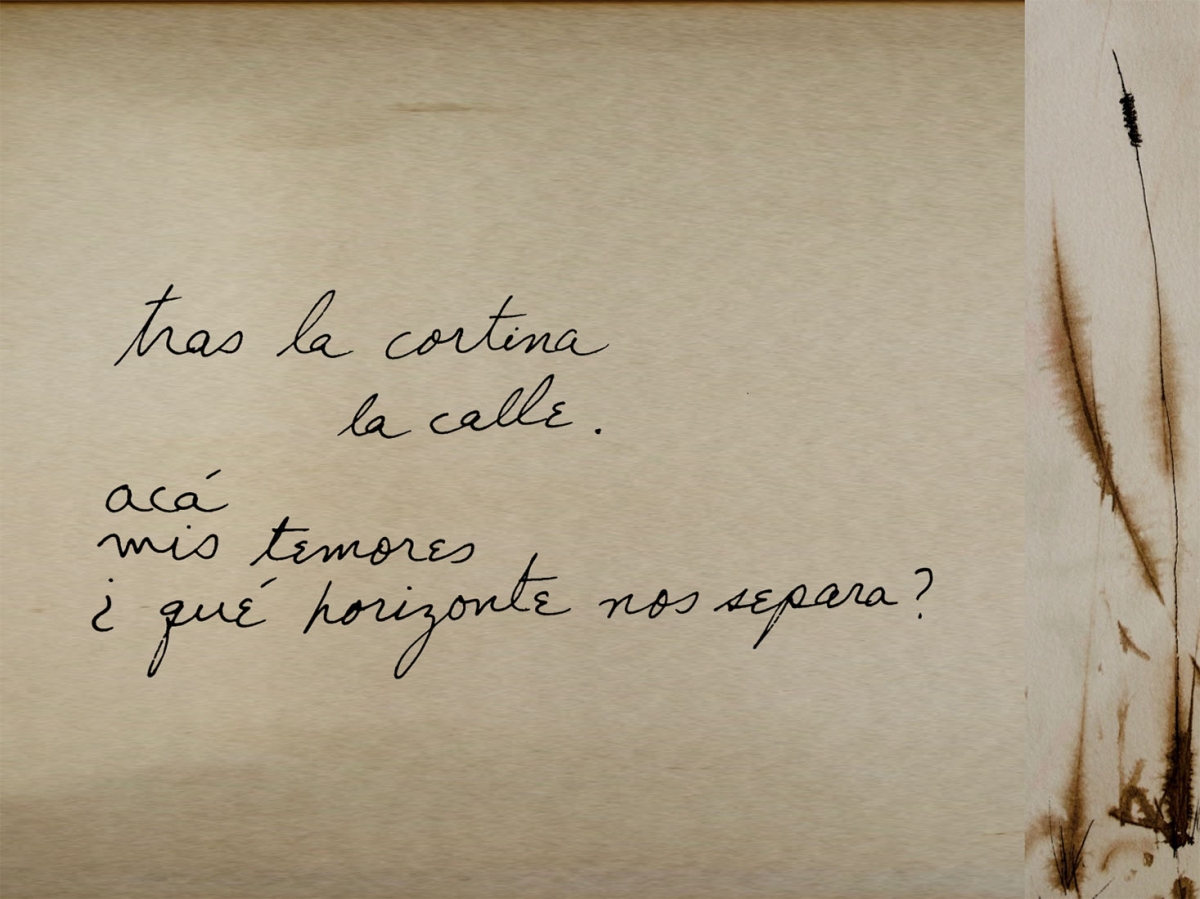 tras la cortina
la calle.
acá
mis temores
¿qué horizonte nos separa?